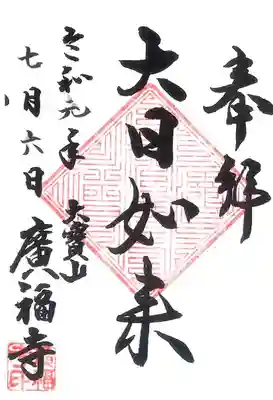 奉拝
大日如来
大寶山
廣福寺
令和元年
七月六日